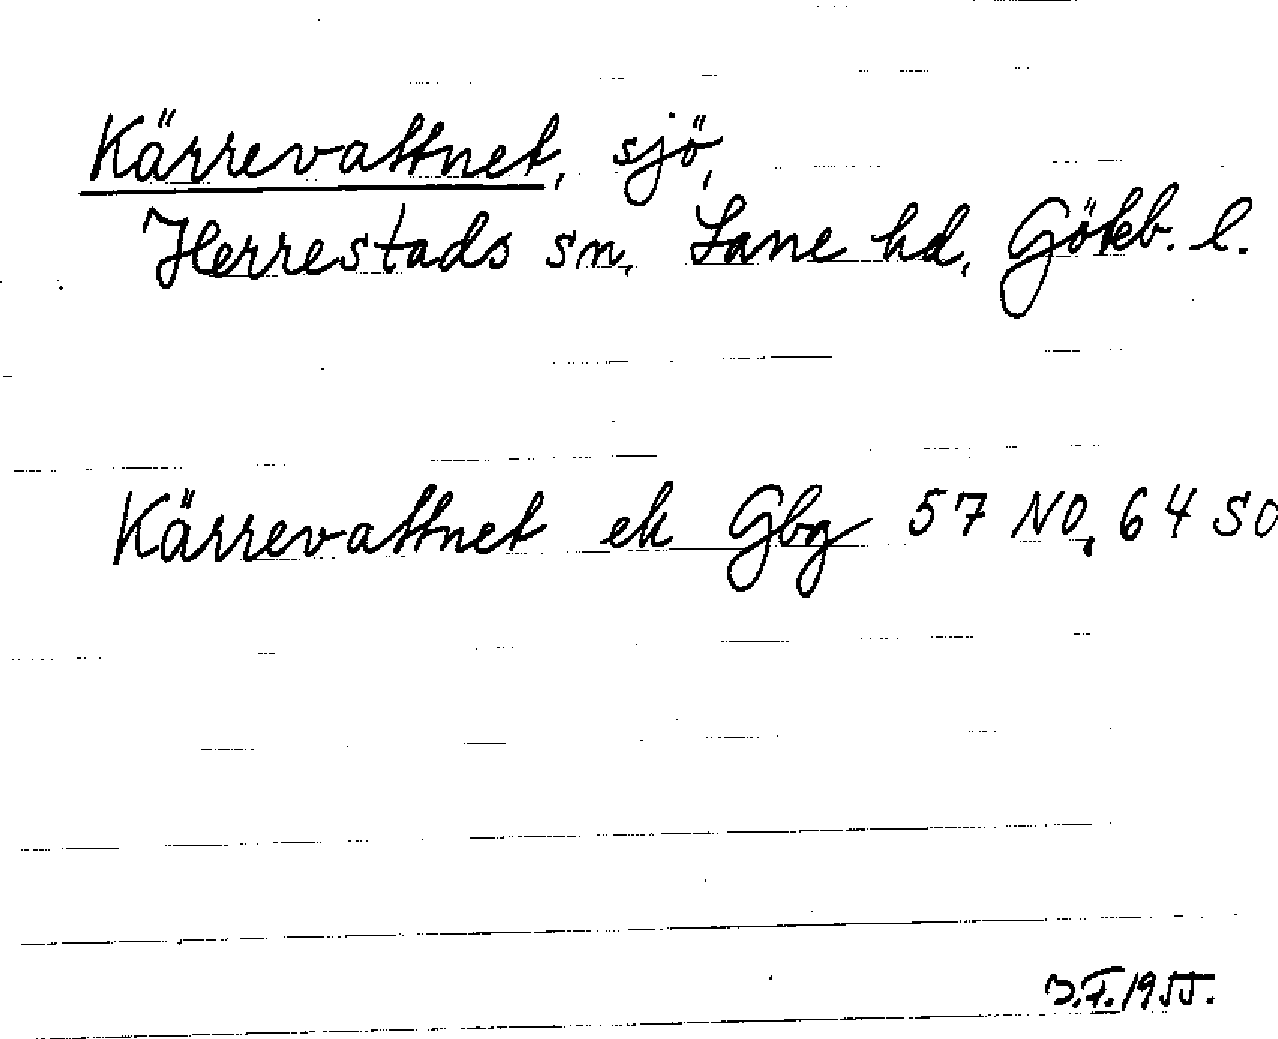 Kärrevattnet, sjö,
Herrestads sn, Lane hd, Gökb. l.
Kärrevattnet ek Gbg 57 NO, 64 SO
J.F. 1955.